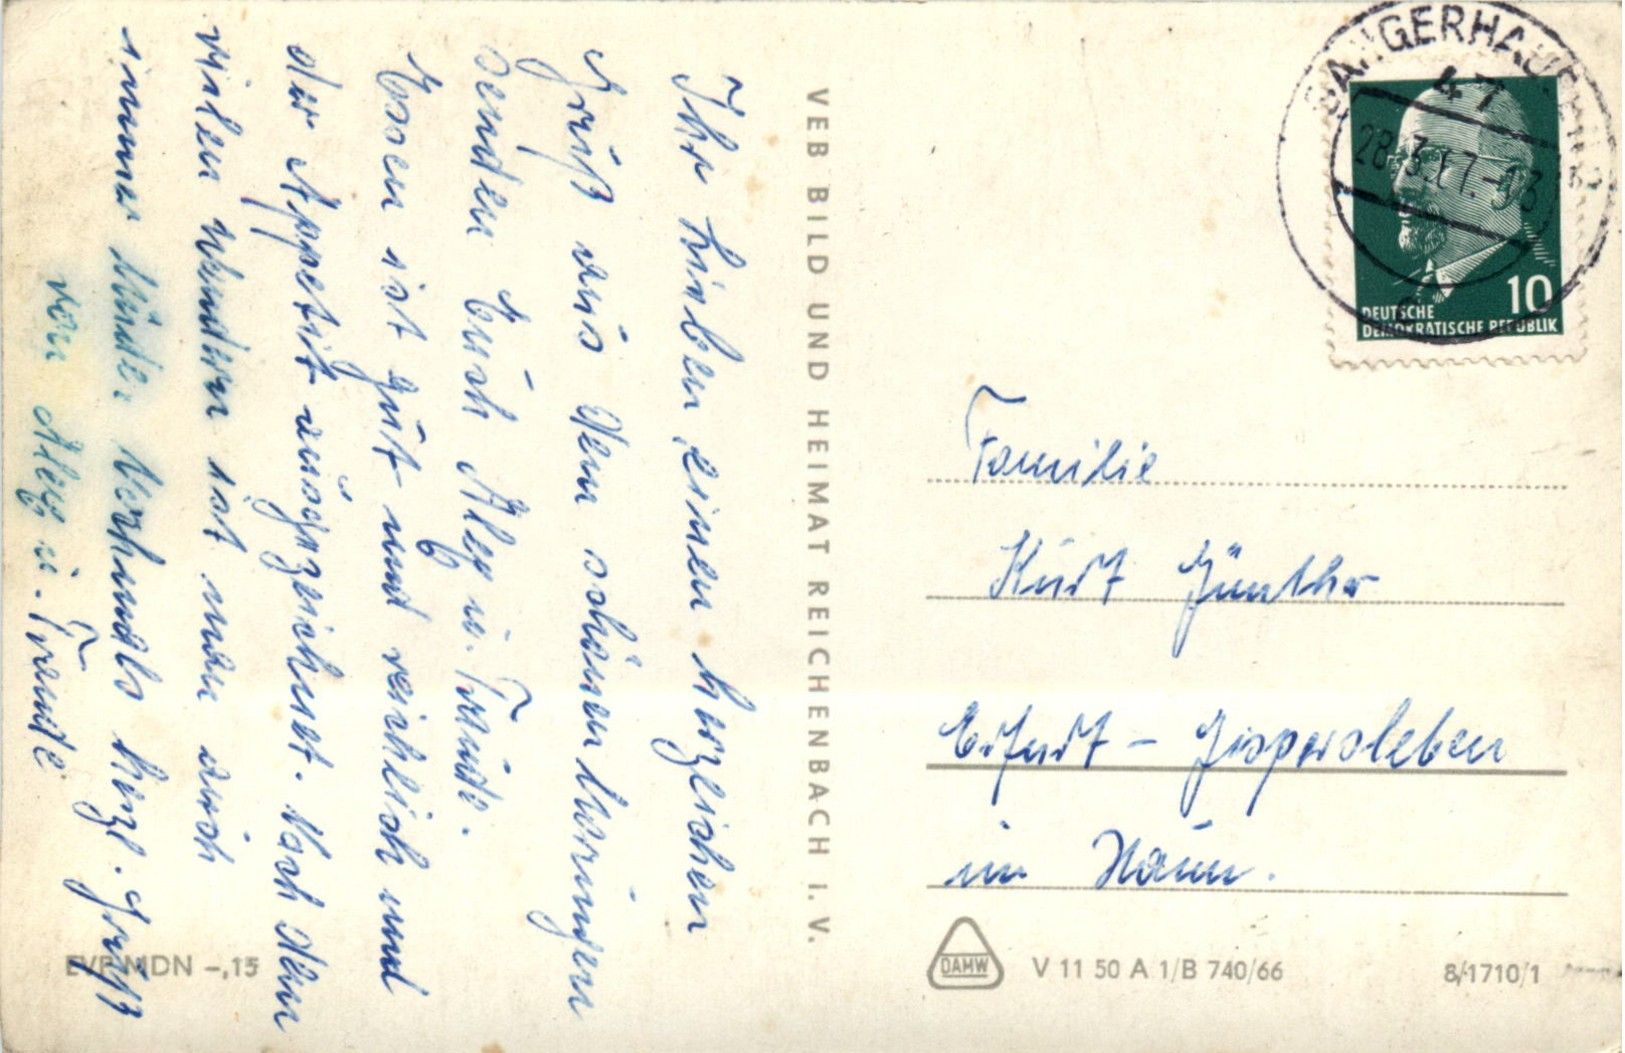 Ihr Lieben, einen herzlichen
Gruß aus dem schönen Morungen
senden Euch Alex u. Traude.
Essen ist gut und reichlich und
der Appetit ausgezeichnet. Nach dem
vielen Wandern ist man auch
immer müde. Nochmals herzl. Gruß
von Alex u. Traude
VEB BILD UND HEIMAT REICHENBACH I. V.
EVP MDN -,15
SANGERHAUSEN
47
28.3.67.-13
10
DEUTSCHE
DEMOKRATISCHE REPUBLIK
Familie
Kurt Günther
Erfurt - Gispersleben
im Haun.
DAMW
V 11 50 A 1/B 740/66
8/1710/1